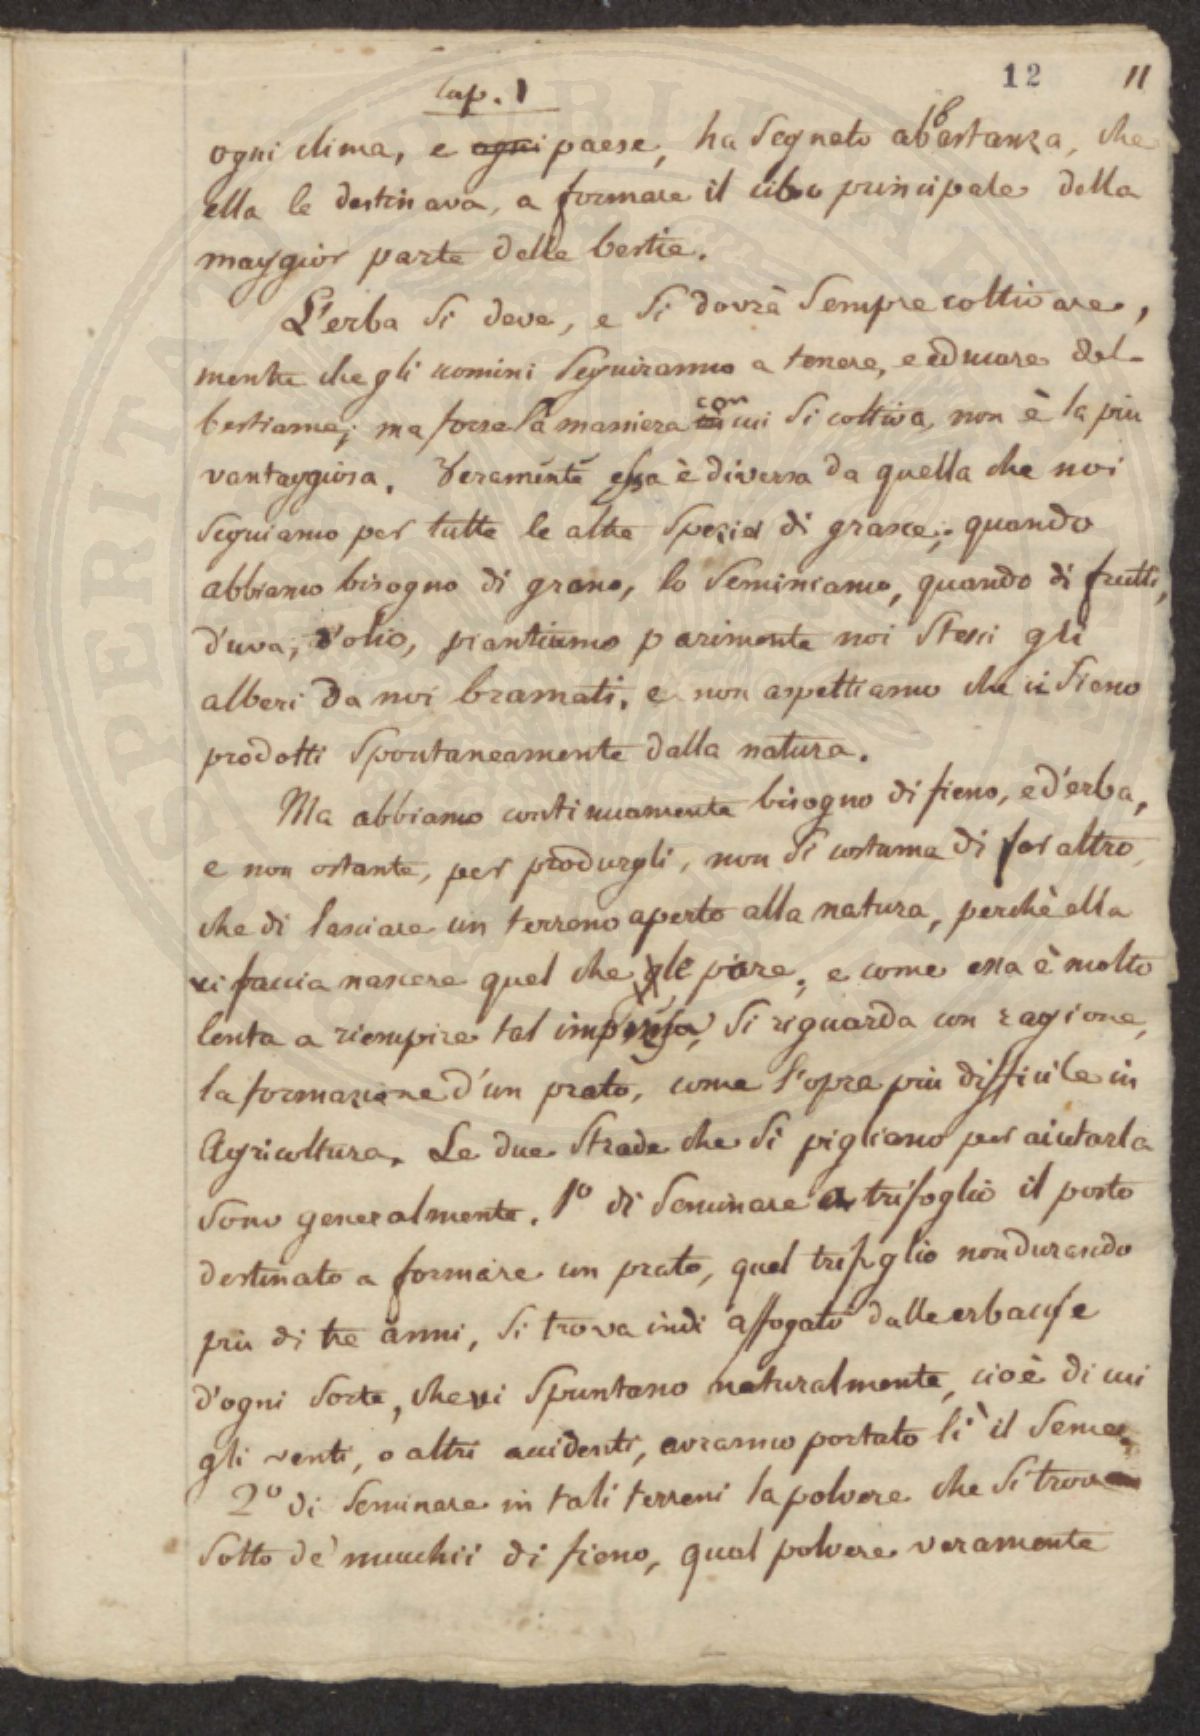 12 11
Cap. 1
ogni clima, e ogni paese, ha segnato abbastanza, che
ella le destinava, a formare il cibo principale della
maggior parte delle bestie.
L'erba si deve, e si dovrà sempre coltivare,
mentre che gli uomini seguiranno a tenere, e educare del-
bestiame; ma forse la maniera con cui si coltiva, non è la piu
vantaggiosa. Veramente essa è diversa da quella che noi
seguiamo per tutte le altre spezies di grasce; quando
abbiamo bisogno di grano, lo seminiamo, quando di frutti,
d'uva, d'olio, piantiamo parimente noi stessi gli
alberi da noi bramati, e non aspettiamo che ci sieno
prodotti spontaneamente dalla natura.
Ma abbiamo continuamente bisogno di fieno, e d'erba,
e non ostante, per produrgli, non si costuma di far altro,
che di lasciare un terreno aperto alla natura, perchè ella
vi faccia nascere quel che le piace, e come essa è molto
lenta a riempire tal impresa, si riguarda con ragione,
la formazione d'un prato, come l'opra piu difficile in
Agricoltura. Le due strade che si pigliano per aiutarla
sono generalmente. 1º di seminare a trifoglio il posto
destinato a formare un prato, quel trifoglio non durando
piu di tre anni, si trova indi affogato dalle erbacce
d'ogni sorte, che vi spuntano naturalmente, cioè di cui
gli venti, o altri accidenti, avranno portato lì il seme.
2º di seminare in tali terreni la polvere che si trova
sotto de' mucchii di fieno, qual polvere veramente